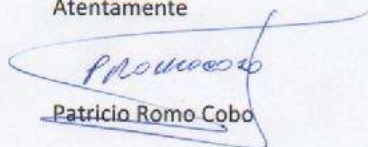 Atentamente
Patricio Romo Cobo